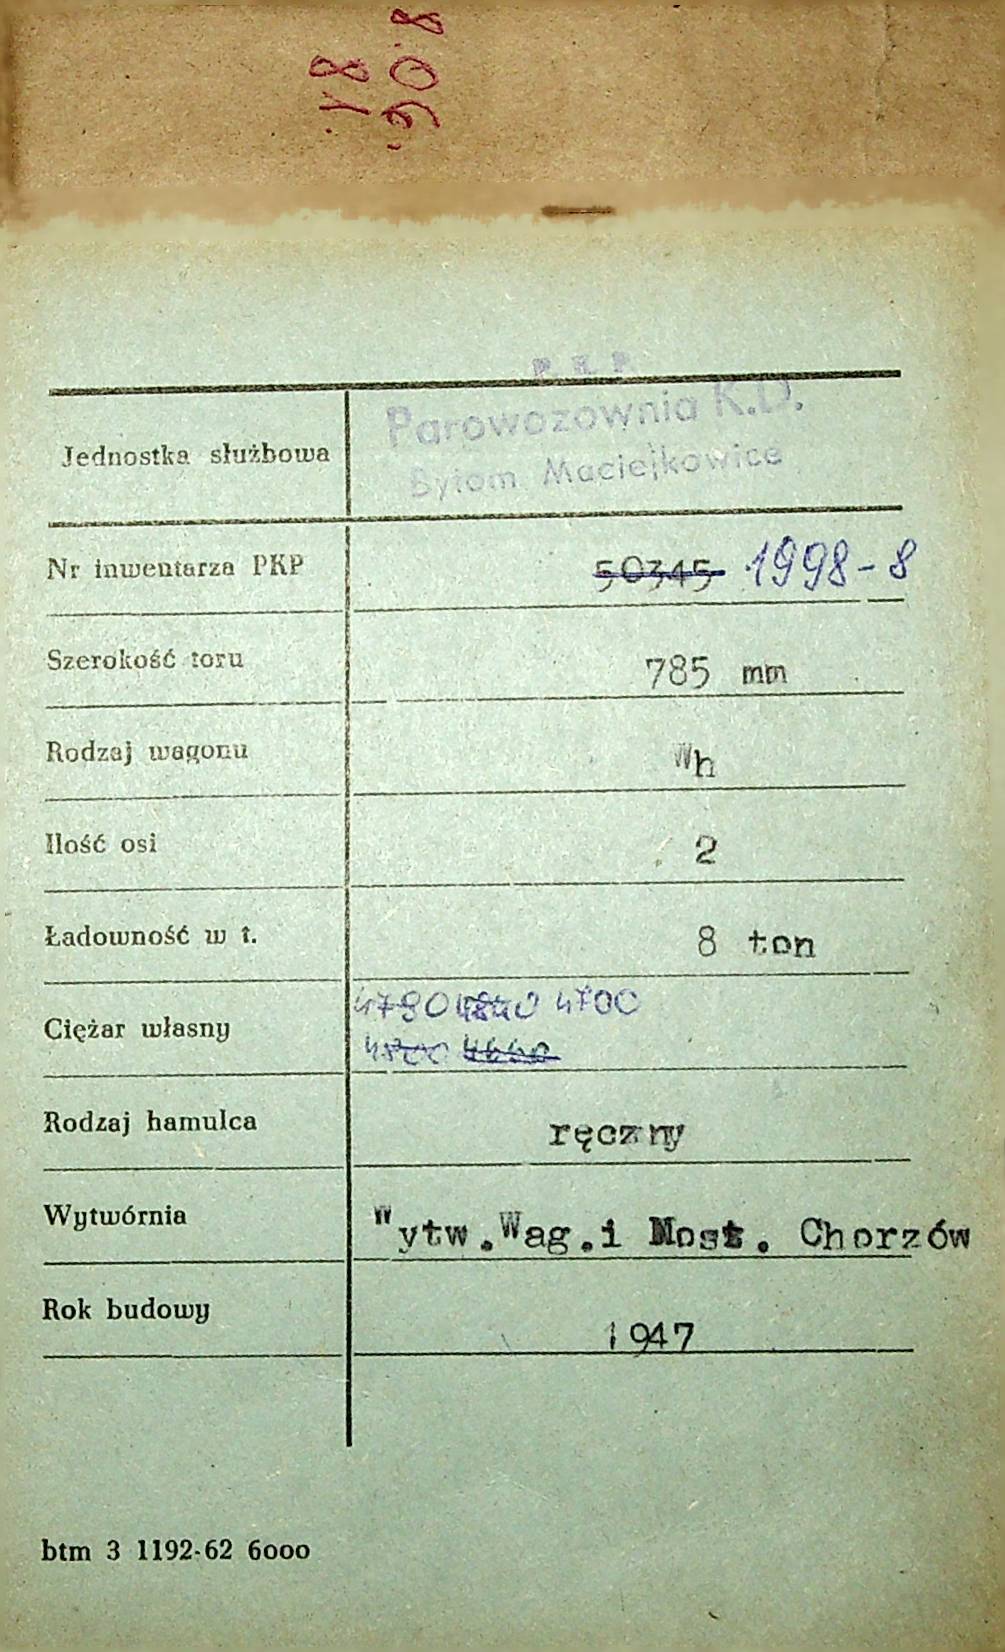 P. K. P.
Parowozownia K.D.
Bytom Maciejkowice
Jednostka służbowa
Nr inwentarza PKP 50345 1998-8
Szerokość toru 785 mm
Rodzaj wagonu Wh
Ilość osi 2
Ładowność w t. 8 ton
Ciężar własny 4780 4840 4700
4800 4660
Rodzaj hamulca ręczny
Wytwórnia Wytw.Wag.i Most. Chorzów
Rok budowy 1947
btm 3 1192-62 6000